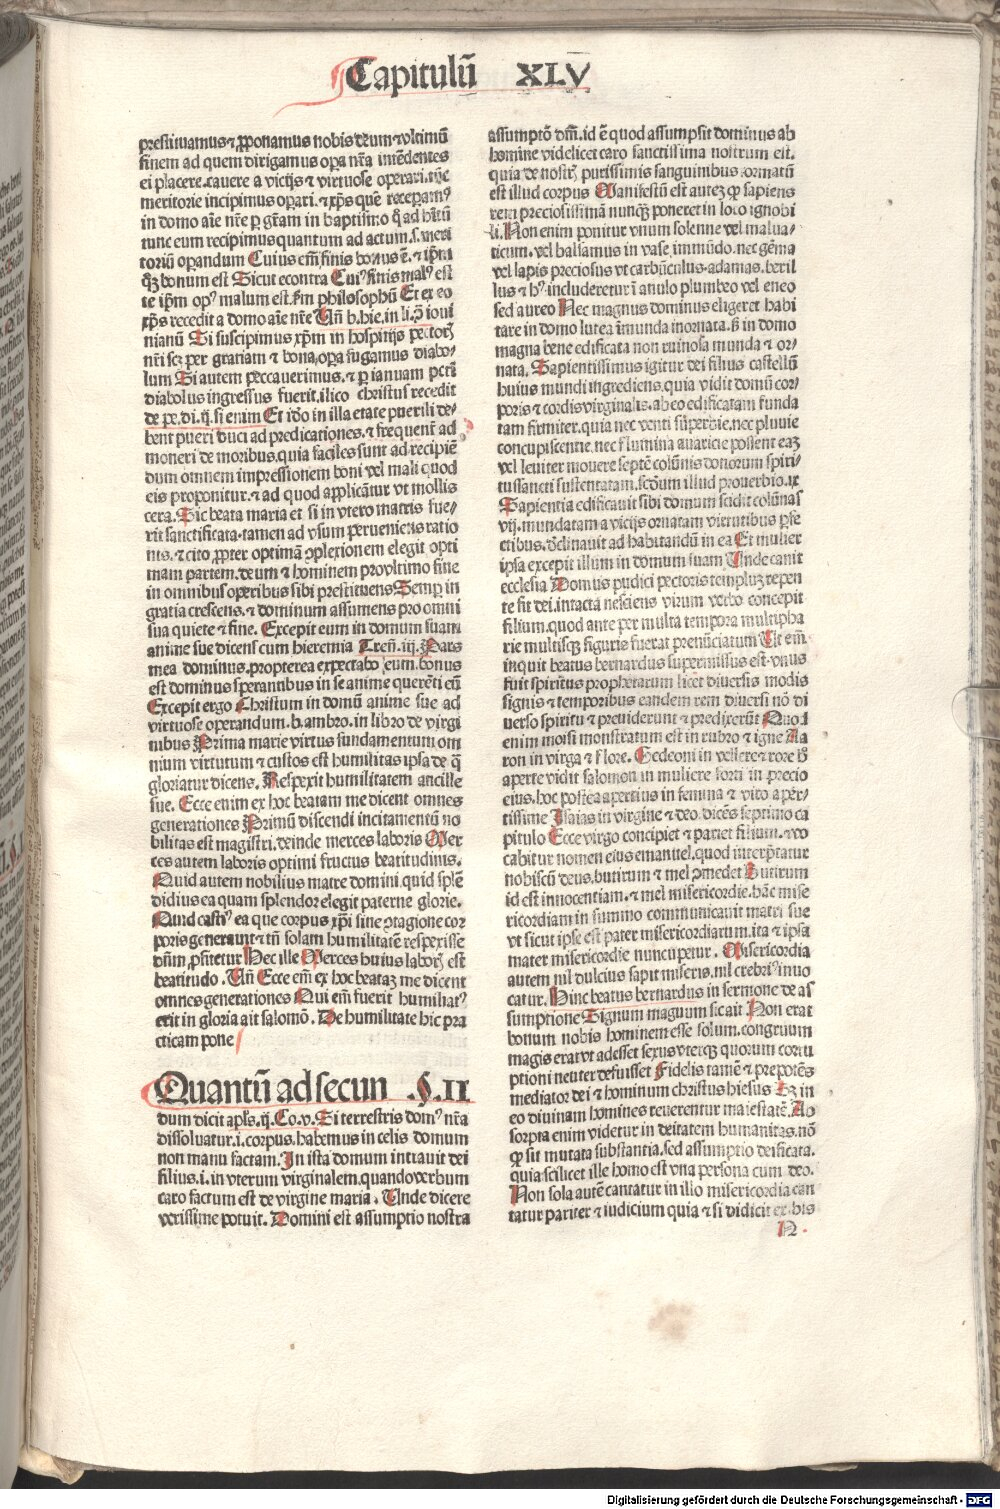 Capitulū XLV
prestituamus ⁊ ꝓponamus nobis deum vltimū
finem ad quem dirigamus oꝑa nr̄a intēdentes
ei placere. cauere a vicijs ⁊ virtuose operari. tūc
meritorie incipimus oꝑari. ⁊ xp̄s quē recepamꝰ
in domo aīe nr̄e ꝑ gr̄am in baptismo q̄ ad hītū
tunc eum recipimus quantum ad actum .s. meri
toriū oꝑandum Cuius em̄ finis bonus ē. ⁊ ip̄m
qꝫ bonum est Sicut econtra Cuiꝰ finis malꝰ est
ip̄m opꝰ malum est. ẜm philosophū Et ex eo
xp̄s recedit a domo aīe nr̄e Un̄ b. hie. in li. ꝯ ioui
nianū Si suscipimus xp̄m in hospitijs pectorꝫ
nr̄i scꝫ per gratiam ⁊ bona oꝑa fugamus diabo-
lum Si autem peccauerimus. ⁊ ꝑ ianuam pctī
diabolus ingressus fuerit. ilico christus recedit
de pe. di. ij. si enim Et ido in illa etate puerili de-
bent pueri duci ad predicationes. ⁊ frequent̄ ad
moneri de moribus. quia faciles sunt ad recipiē
dum omnem impressionem boni vel mali quod
eis proponitur. ⁊ ad quod applicātur vt mollis
cera. Sic beata maria et si in vtero matris fue-
rit sanctificata. tamen ad vsum perueniens ratio
nis. ⁊ cito ꝓpter optimā ꝯplexionem elegit opti
mam partem. deum ⁊ hominem pro vltimo fine
in omnibus operibus sibi prestituens Semꝑ in
gratia crescens. ⁊ dominum assumens pro omni
sua quiete ⁊ fine. Excepit eum in domum suam
anime sue dicens cum hieremia Tren̄. iij. Pars
mea dominus. propterea expectabo eum. bonus
est dominus sperantibus in se anime querēti eū
Excepit ergo Christum in domū anime sue ad
virtuose operandum. b. ambro. in libro de virgi
nibus Prima marie virtus fundamentum om
nium virtutum ⁊ custos est humilitas ipsa de q̄
gloriatur dicens. Respexit humilitatem ancille
sue. Ecce enim ex hoc beatam me dicent omnes
generationes Primū discendi incitamentū no
bilitas est magistri. deinde merces laboris Mer
ces autem laboris optimi fructus beatitudinis.
Quid autem nobilius matre domini. quid splē
didius ea quam splendor elegit paterne glorie.
Quid castiꝰ ea que corpus xp̄i sine ꝯtagione cor
poris generauit ⁊ tn̄ solam humilitatē respexisse
dn̄m ꝓfitetur Hec ille Merces huius laborꝫ est
beatitudo. Un̄ Ecce em̄ ex hoc beataꝫ me dicent
omnes generationes Qui em̄ fuerit humiliatꝰ
erit in gloria ait salomō. De humilitate hic pra
cticam pone
Quantū ad secun §. II
dum dicit apl̄s. ij. Co. v. Si terrestris domꝰ nr̄a
dissoluatur .i. corpus. habemus in celis domum
non manu factam. In ista domum intrauit dei
filius .i. in vterum virginalem. quando verbum
caro factum est de virgine maria. Unde dicere
verissime potuit. Domini est assumptio nostra
assumptō dn̄i. id ē quod assumpsit dominus ab
homine videlicet caro sanctissima nostrum est.
quia de nostrꝫ purissimis sanguinibus formatū
est illud corpus Manifestū est autez ꝙ sapiens
rem preciosissimā nunqꝫ poneret in loco ignobi
li. Non enim ponitur vinum solenne vel malua-
ticum. vel balsamus in vase immūdo. nec gēma
vel lapis preciosus vt carbūculus. adamas. beril
lus ⁊ hꝰ. includeretur ī anulo plumbeo vel eneo
sed aureo Nec magnus dominus eligeret habi
tare in domo lutea īmunda inornata. ß in domo
magna bene edificata non ruinosa munda ⁊ or-
nata. Sapientissimus igitur dei filius castellū
huius mundi ingrediens. quia vidit domū cor-
poris ⁊ cordis virginalis. ab eo edificatam funda
tam firmiter. quia nec venti superbie. nec pluuie
concupiscentie. nec flumina auaricie possent eaꝫ
vel leuiter mouere septē colūnis donorum spiri-
tussancti sustentatam. scd̄um illud prouerbio. ix
Sapientia edificauit sibi domum scidit colūnas
vij. mundatam a vicijs ornatam virtutibus ꝑfe
ctibus. declinauit ad habitandū in ea Et mulier
ipsa excepit illum in domum suam Unde canit
ecclesia Domus pudici pectoris templuꝫ repen
te fit dei. intacta nesciens virum verbo concepit
filium. quod ante per multa tempora multipha
rie multisqꝫ figuris fuerat prenūciatum Ut em̄
inquit beatus bernardus super missus est. vnus
fuit spiritus prophetarum licet diuersis modis
signis ⁊ temporibus eandem rem diuersi nō di
uerso spiritu ⁊ preuiderunt ⁊ predixerūt Quod
enim moisi monstratum est in rubro ⁊ igne Aa
ron in virga ⁊ flore. Gedeoni in vellere ⁊ rore hꝰ
aperte vidit salomon in muliere forti in precio
eius. hoc postea apertius in femina ⁊ viro aper-
tissime Isaias in virgine ⁊ deo. dicēs septimo ca
pitulo Ecce virgo concipiet ⁊ pariet filium. ⁊ vo
cabitur nomen eius emanuel. quod interp̄tatur
nobiscū deus. butirum ⁊ mel ꝯmedet Butirum
id est innocentiam. ⁊ mel misericordie. hāc mise
ricordiam in summo communicauit matri sue
vt sicut ipse est pater misericordiarum. ita ⁊ ipsa
mater misericordie nuncupetur. Misericordia
autem nil dulcius sapit miseris. nil crebriꝰ inuo
catur. Hinc beatus bernardus in sermone de as
sumptione Signum magnum sic ait Non erat
bonum nobis hominem esse solum. congruum
magis erat vt adesset sexus vterqꝫ quorum corru
ptioni neuter defuisset Fidelis tamē ⁊ prepotēs
mediator dei ⁊ hominum christus hiesus Sꝫ in
eo diuinam homines reuerentur maiestatē. Ab
sorpta enim videtur in deitatem humanitas. nō
ꝙ sit mutata substantia. sed assumptio deificata.
quia scilicet ille homo est vna persona cum deo.
Non sola autē cantatur in illo misericordia can
tatur pariter ⁊ iudicium quia ⁊ si didicit ex his
N
Digitalisierung gefördert durch die Deutsche Forschungsgemeinschaft - DFG